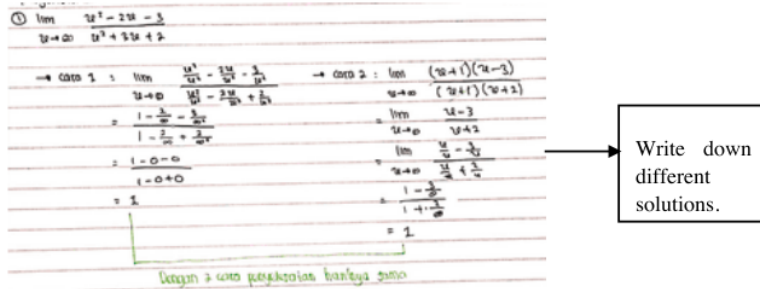 ① lim x² - 2x - 3
x→∞ x² + 3x + 2
→ cara 1 : lim x²/x² - 2x/x² - 3/x²
x→∞ x²/x² - 3x/x² + 2/x²
= 1 - 2/∞ - 3/∞²
1 - 3/∞ + 2/∞²
= 1 - 0 - 0
1 - 0 + 0
= 1
→ cara 2 : lim (x+1)(x-3)
x→∞ (x+1)(x+2)
= lim x-3
x→∞ x+2
= lim x/x - 3/x
x→∞ x/x + 2/x
= 1 - 3/∞
1 + 2/∞
= 1
Dengan 2 cara penyelesaian hasilnya sama
Write down
different
solutions.